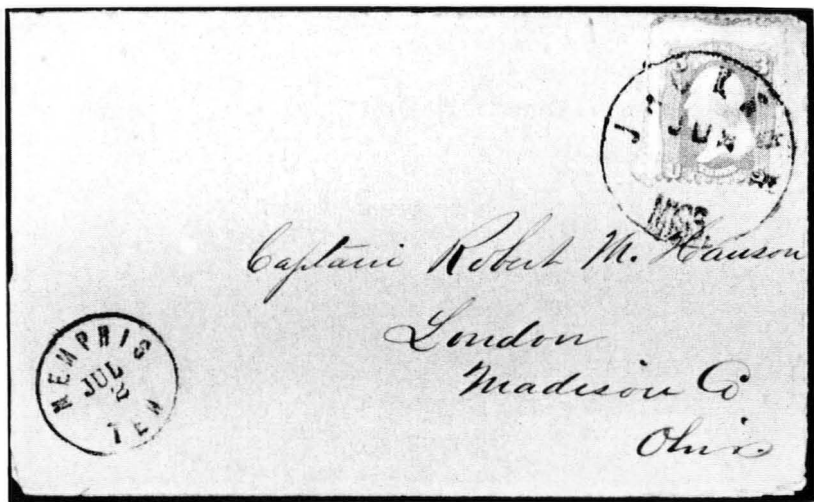 JACKSON
JUN
MISS.
Captain Robert M. Hanson
London
Madison Co
Ohio
MEMPHIS
JUL
2
TEN